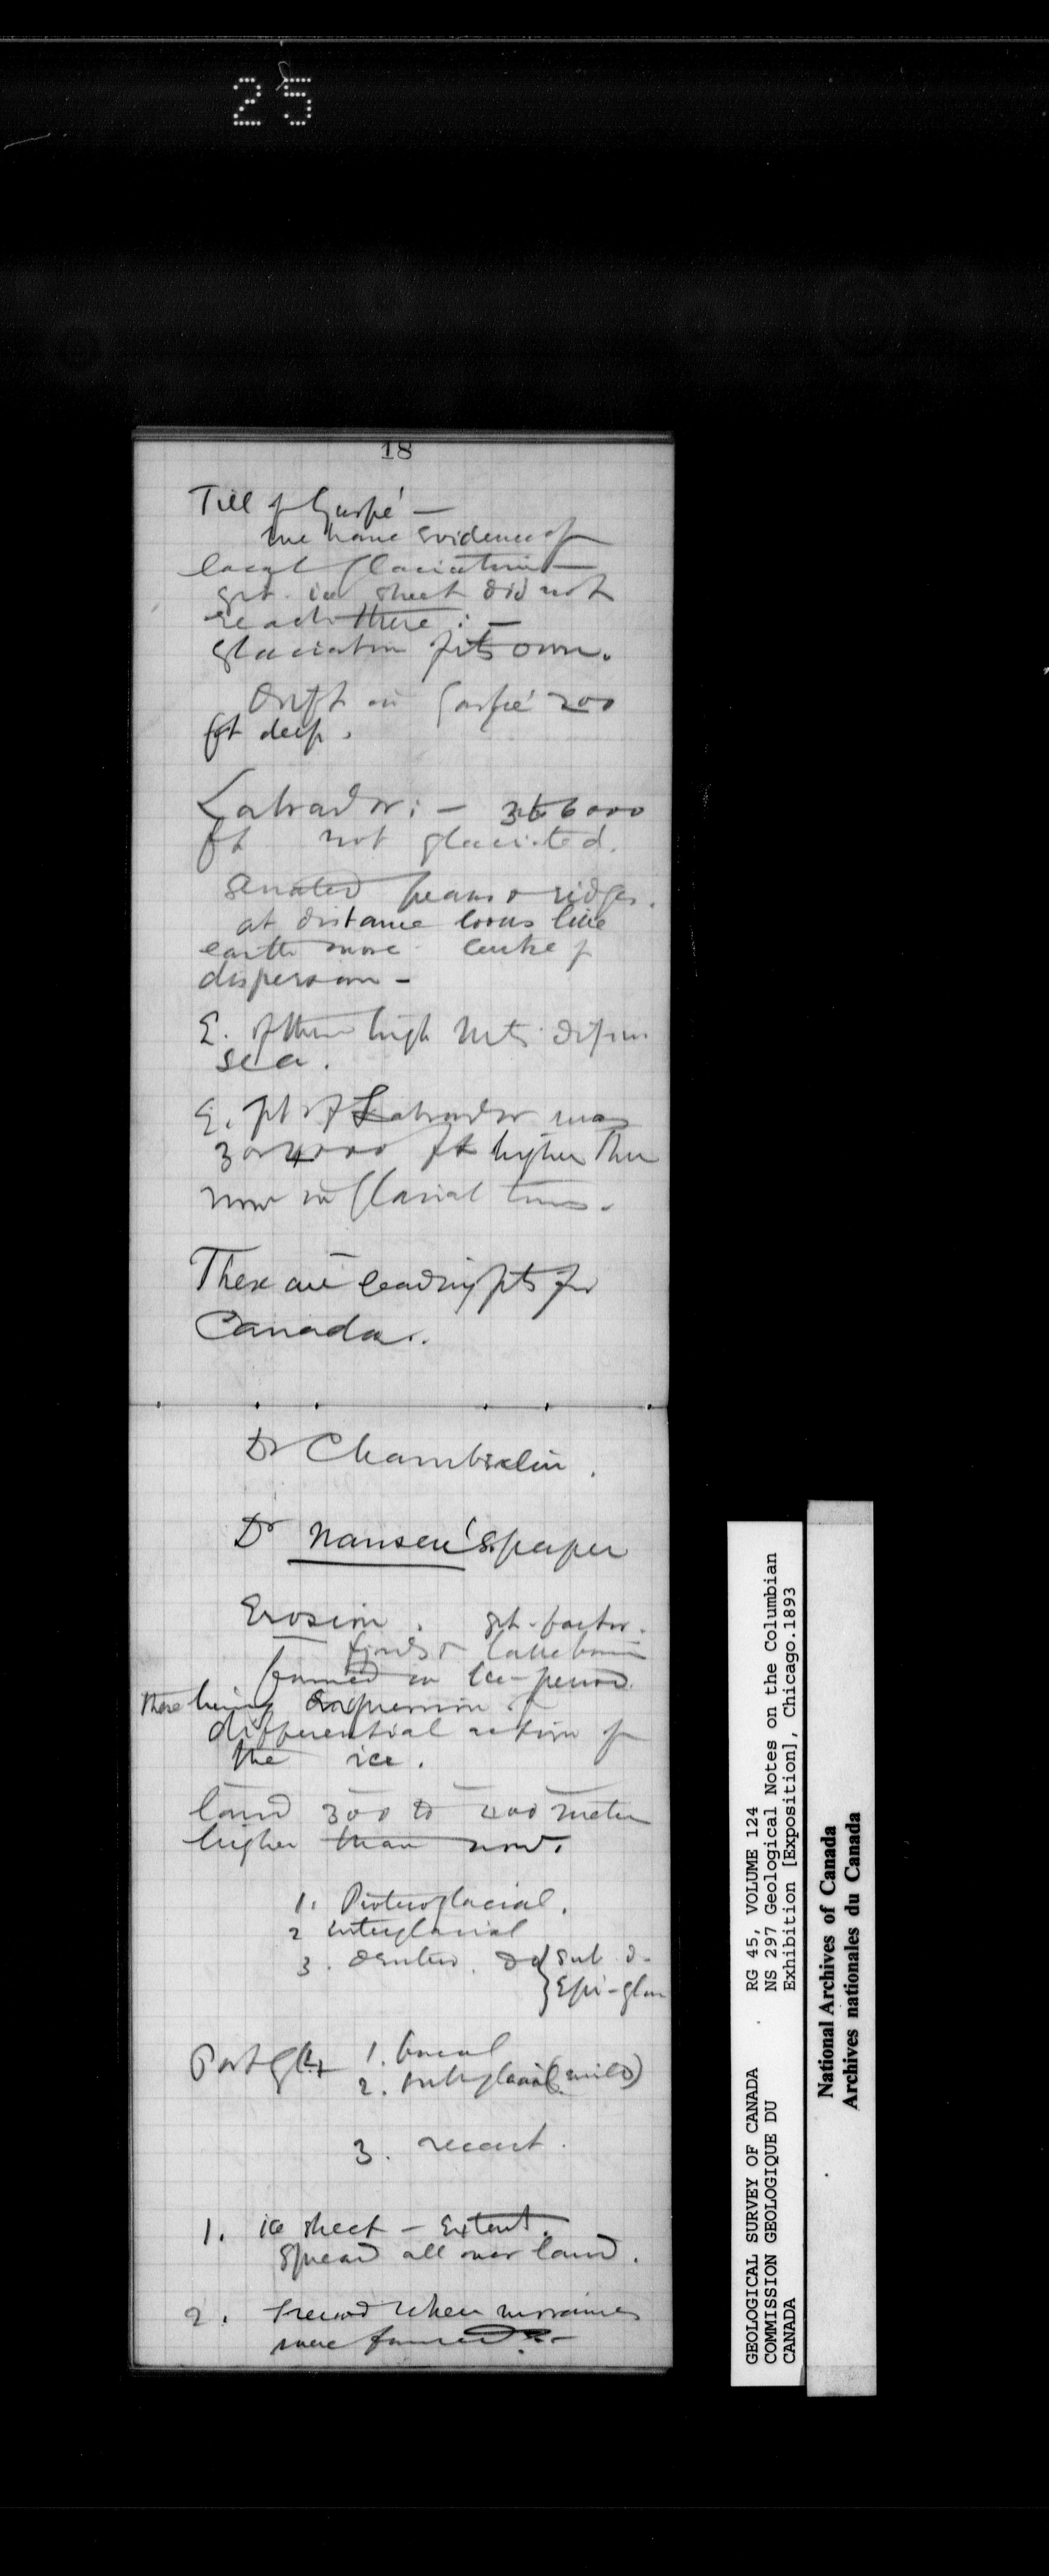 25
18
Till of Gaspé —
we have evidence of
local glaciation —
grt. ice sheet did not
reach there : —
glaciation of its own.
Drift in Gaspé 200
ft deep.
Labrador : — 3 to 6000
ft not glaciated.
serrated peaks & ridges.
at distance looks like
earth more centre of
dispersion —
E. of these high Mts.
sea.
E. pt of Labrador was
3 or 4000 ft higher than
now in glacial times.
These are leading pts for
Canada.
Dr Chamberlin.
Dr Nansen's paper
Erosion . grt. factor.
fjords & lake basins
formed in Ice-period.
There being expression of
differential action of
the ice.
land 300 to 400 meters
higher than now.
1. Proteroglacial.
2 interglacial
3. deutero. do { sub. d.
Epi-glac
Post Gl.
1. boreal
2. (mild)
3. recent.
1. ice sheet — Extent.
spread all over land.
2. Period when moraines
were formed. —
GEOLOGICAL SURVEY OF CANADA RG 45, VOLUME 124
COMMISSION GEOLOGIQUE DU NS 297 Geological Notes on the Columbian
CANADA Exhibition [Exposition], Chicago.1893
National Archives of Canada
Archives nationales du Canada